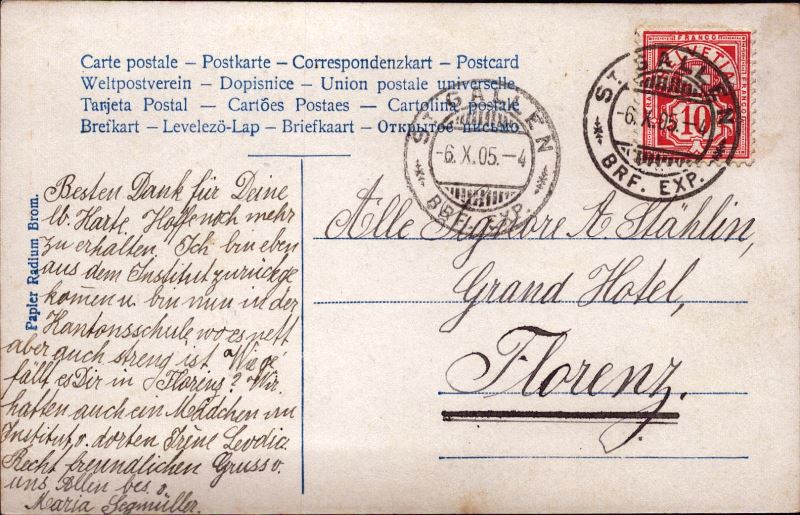 Carte postale – Postkarte – Correspondenzkart – Postcard
Weltpostverein – Dopisnice – Union postale universelle
Tarjeta Postal – Cartões Postaes – Cartolina postale
Breikart – Levelezö-Lap – Briefkaart – Открытое письмо
FRANCO
HELVETIA
10
ST. GALLEN
-6.X.05.-4
BRF. EXP.
ST. GALLEN
-6.X.05.-4
BRF. EXP.
Papier Radium Brom.
Besten Dank für Deine
lb. Karte. Hoffe noch mehr
zu erhalten. Ich bin eben
aus dem Institut zurückge
kommen u. bin nun in der
Kantonsschule, wo es nett
aber auch streng ist. Wie ge
fällt es Dir in Florenz? Wir
hatten auch ein Mädchen im
Institut v. dorten Irène
Recht freundlichen Gruss v.
uns Allen bes. v.
Maria Segmüller.
Alle Signore A Stählin,
Grand Hotel,
Florenz.